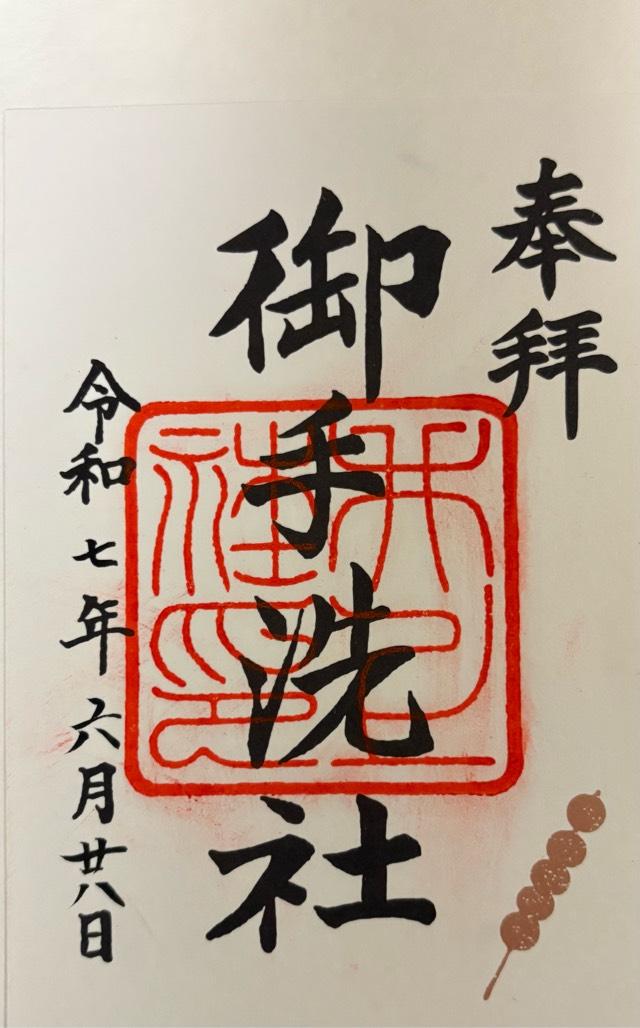 奉拝
御手洗社
令和七年六月廿八日